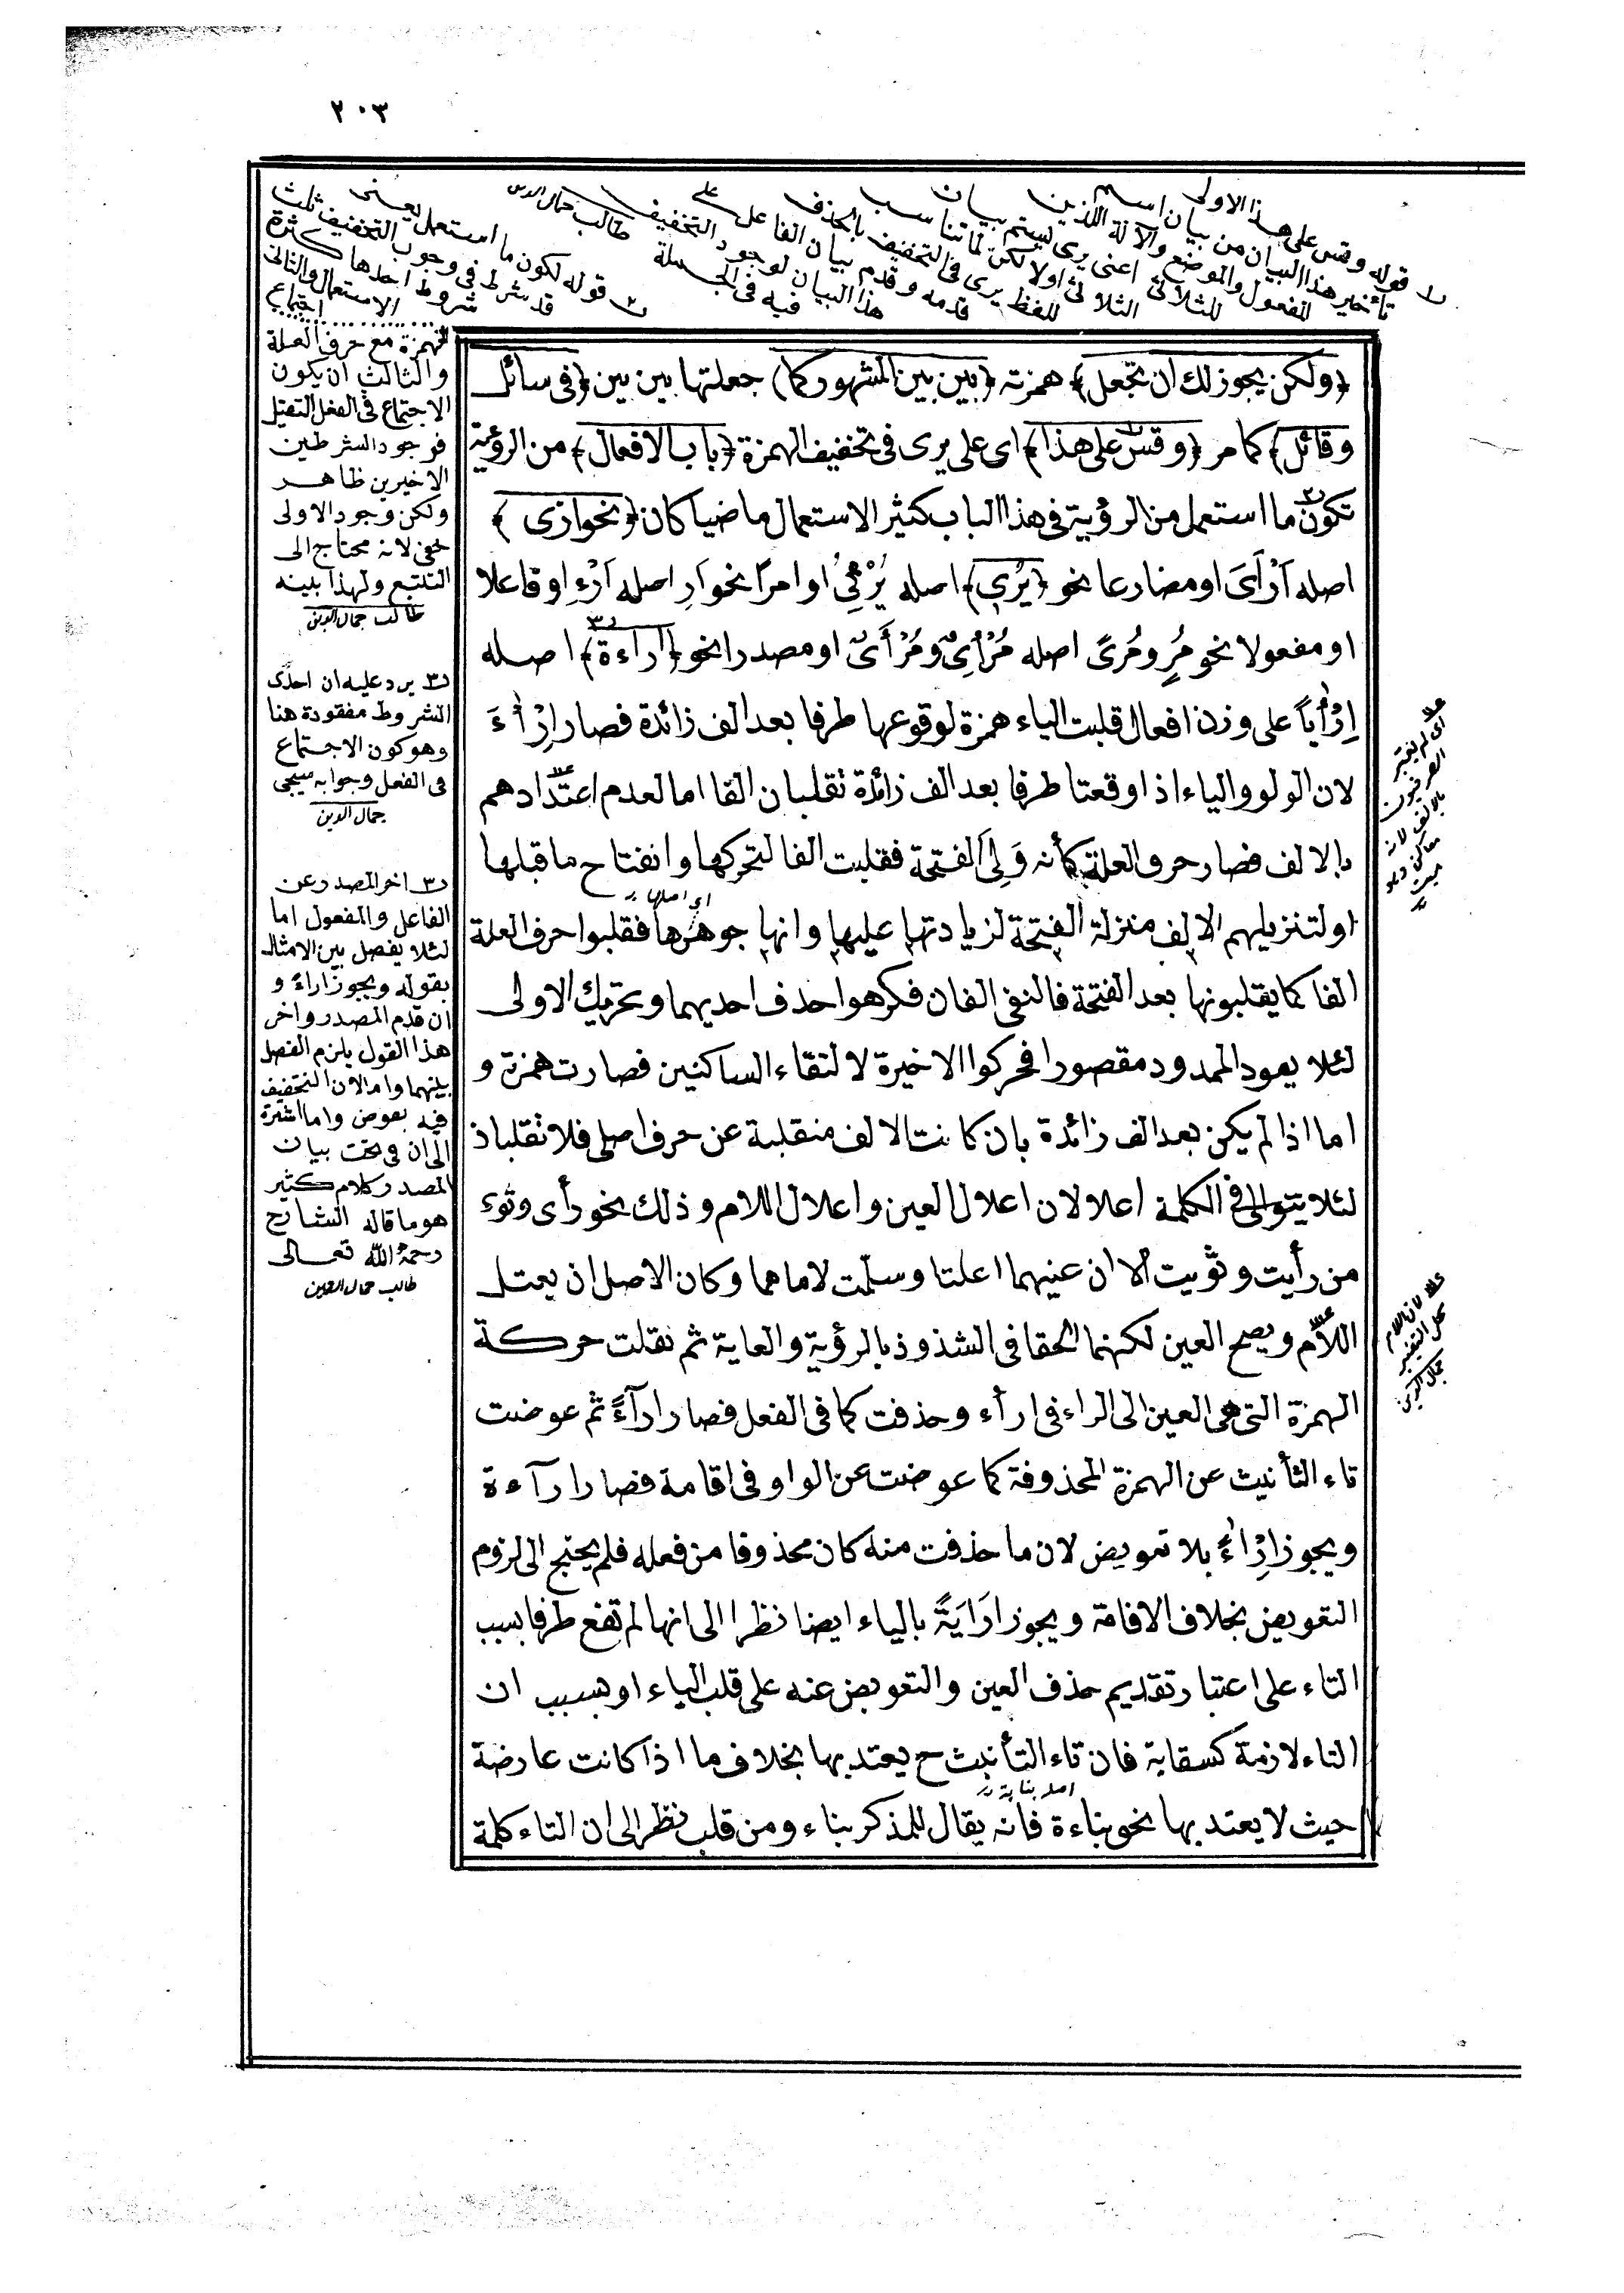 ٢٠٣
د١ قوله وقس على هذا الاولى
تأخير هذا البيان من بيان اسم
المفعول والموضع والآلة اللذين
للثلاثى اعنى يرى ليستم بيان
الثلاثى اولا لكن لما تناسب
للفظ يرى فى التخفيف بالحذف
قدمه وقدم بيان الفاعل على
هذا البيان لوجود التخفيف
فيه فى الجملة
طالب جمال الدين
د٢ قوله لكون ما استعمل يعنى
قد شرط فى وجوب التخفيف ثلث
شروط احدها كثرة
الاستعمال والثانى
اجتماع
الهمزة مع حرف العلة
والثالث ان يكون
الاجتماع فى الفعل الثقيل
فوجود الشرطين
الاخيرين ظاهر
ولكن وجود الاولى
خفى لانه محتاج الى
التتبع ولهذا بينه
طالب جمال الدين
د٣ يرد عليه ان احدى
الشروط مفقودة هنا
وهو كون الاجتماع
فى الفعل وجوابه سيجى
جمال الدين
د٣ اخر المصدر عن
الفاعل والمفعول اما
لئلا يفصل بين الامثال
بقوله ويجوز اراءً و
ان قدم المصدر واخر
هذا القول يلزم الفصل
بينهما واما لان التخفيف
فيه بعوض واما اشارة
الى ان فى تحت بيان
المصدر كلام كثير
هو ما قاله الشارح
رحمة الله تعالى
طالب جمال الدين
﴿ولكن يجوز لك ان تجعل﴾ همزته ﴿بين بين المشهور كما﴾ جعلتها بين بين ﴿فى سائل
وقائل﴾ كما مر ﴿وقس على هذا﴾ اى على يرى فى تخفيف الهمزة ﴿باب الافعال﴾ من الرؤية
تكون ما استعمل من الرؤية فى هذا الباب كثير الاستعمال ماضيا كان ﴿نحو ارى﴾
اصله اَرْاَىَ او مضارعا نحو ﴿يُرِى﴾ اصله يُرْئِىُ او امرًا نحو اَرِ اصله اَرْءِ او فاعلا
او مفعولا نحو مُرٍ ومُرىً اصله مُرْأىٌ ومُرْأَىٌ او مصدرا نحو ﴿اراءة﴾ اصله
اِرْأياً على وزن افعال قلبت الياء همزة لوقوعها طرفا بعد الف زائدة فصار اِرْاءً
لان الولو والياء اذا وقعتا طرفا بعد الف زائدة تقلبان الفا اما لعدم اعتدادهم
بالالف فصار حرف العلة كأنه وَلِىَ الفتحة فقلبت الفا لتحركها وانفتاح ما قبلها
اى اصلها
او لتنزيلهم الالف منزلة الفتحة لزيادتها عليها وانها جوهرها فقلبوا حرف العلة
الفا كما يقلبونها بعد الفتحة فالتقى الفان فكرهوا حذف احديهما وتحريك الاولى
لئلا يعود الممدود مقصورا فحركوا الاخيرة لالتقاء الساكنين فصارت همزة و
اما اذا لم يكن بعد الف زائدة بان كانت الالف منقلبة عن حرف اصلى فلا تقلب اذ
لئلا يتوالى فى الكلمة اعلالان اعلال العين واعلال اللام وذلك نحو رأى وثوء
من رأيت وثويت الا ان عينهما اعلتا وسلمت لاماهما وكان الاصل ان يعتل
اللام ويصح العين لكنهما الحقا فى الشذوذ بالرؤية والغاية ثم نقلت حركة
الهمزة التى هى العين الى الراء فى ارأء وحذفت كما فى الفعل فصار ارآءً ثم عوضت
تاء التأنيث عن الهمزة المحذوفة كما عوضت عن الواو فى اقامة فصار ارآءة
ويجوز اِرْاءً بلا تعويض لان ما حذفت منه كان محذوفا من فعله فلم يحتج الى لزوم
التعويض بخلاف الاقامة ويجوز اِرَايَةً بالياء ايضا نظرا الى انها لم تقع طرفا بسبب
التاء على اعتبار تقديم حذف العين والتعويض عنه على قلب الياء او بسبب ان
التاء لازمة كسقاية فان تاء التأنيث ح يعتد بها بخلاف ما اذا كانت عارضة
اصله بناية
حيث لا يعتد بها نحو بناءة فانه يقال للمذكر بناء ومن قلب نظر الى ان التاء كلمة
اى لم يعتبر
الصرفيون
بالالف لانه
ساكن وهو
ميت
لان اللام
محل التغير
جمال الدين